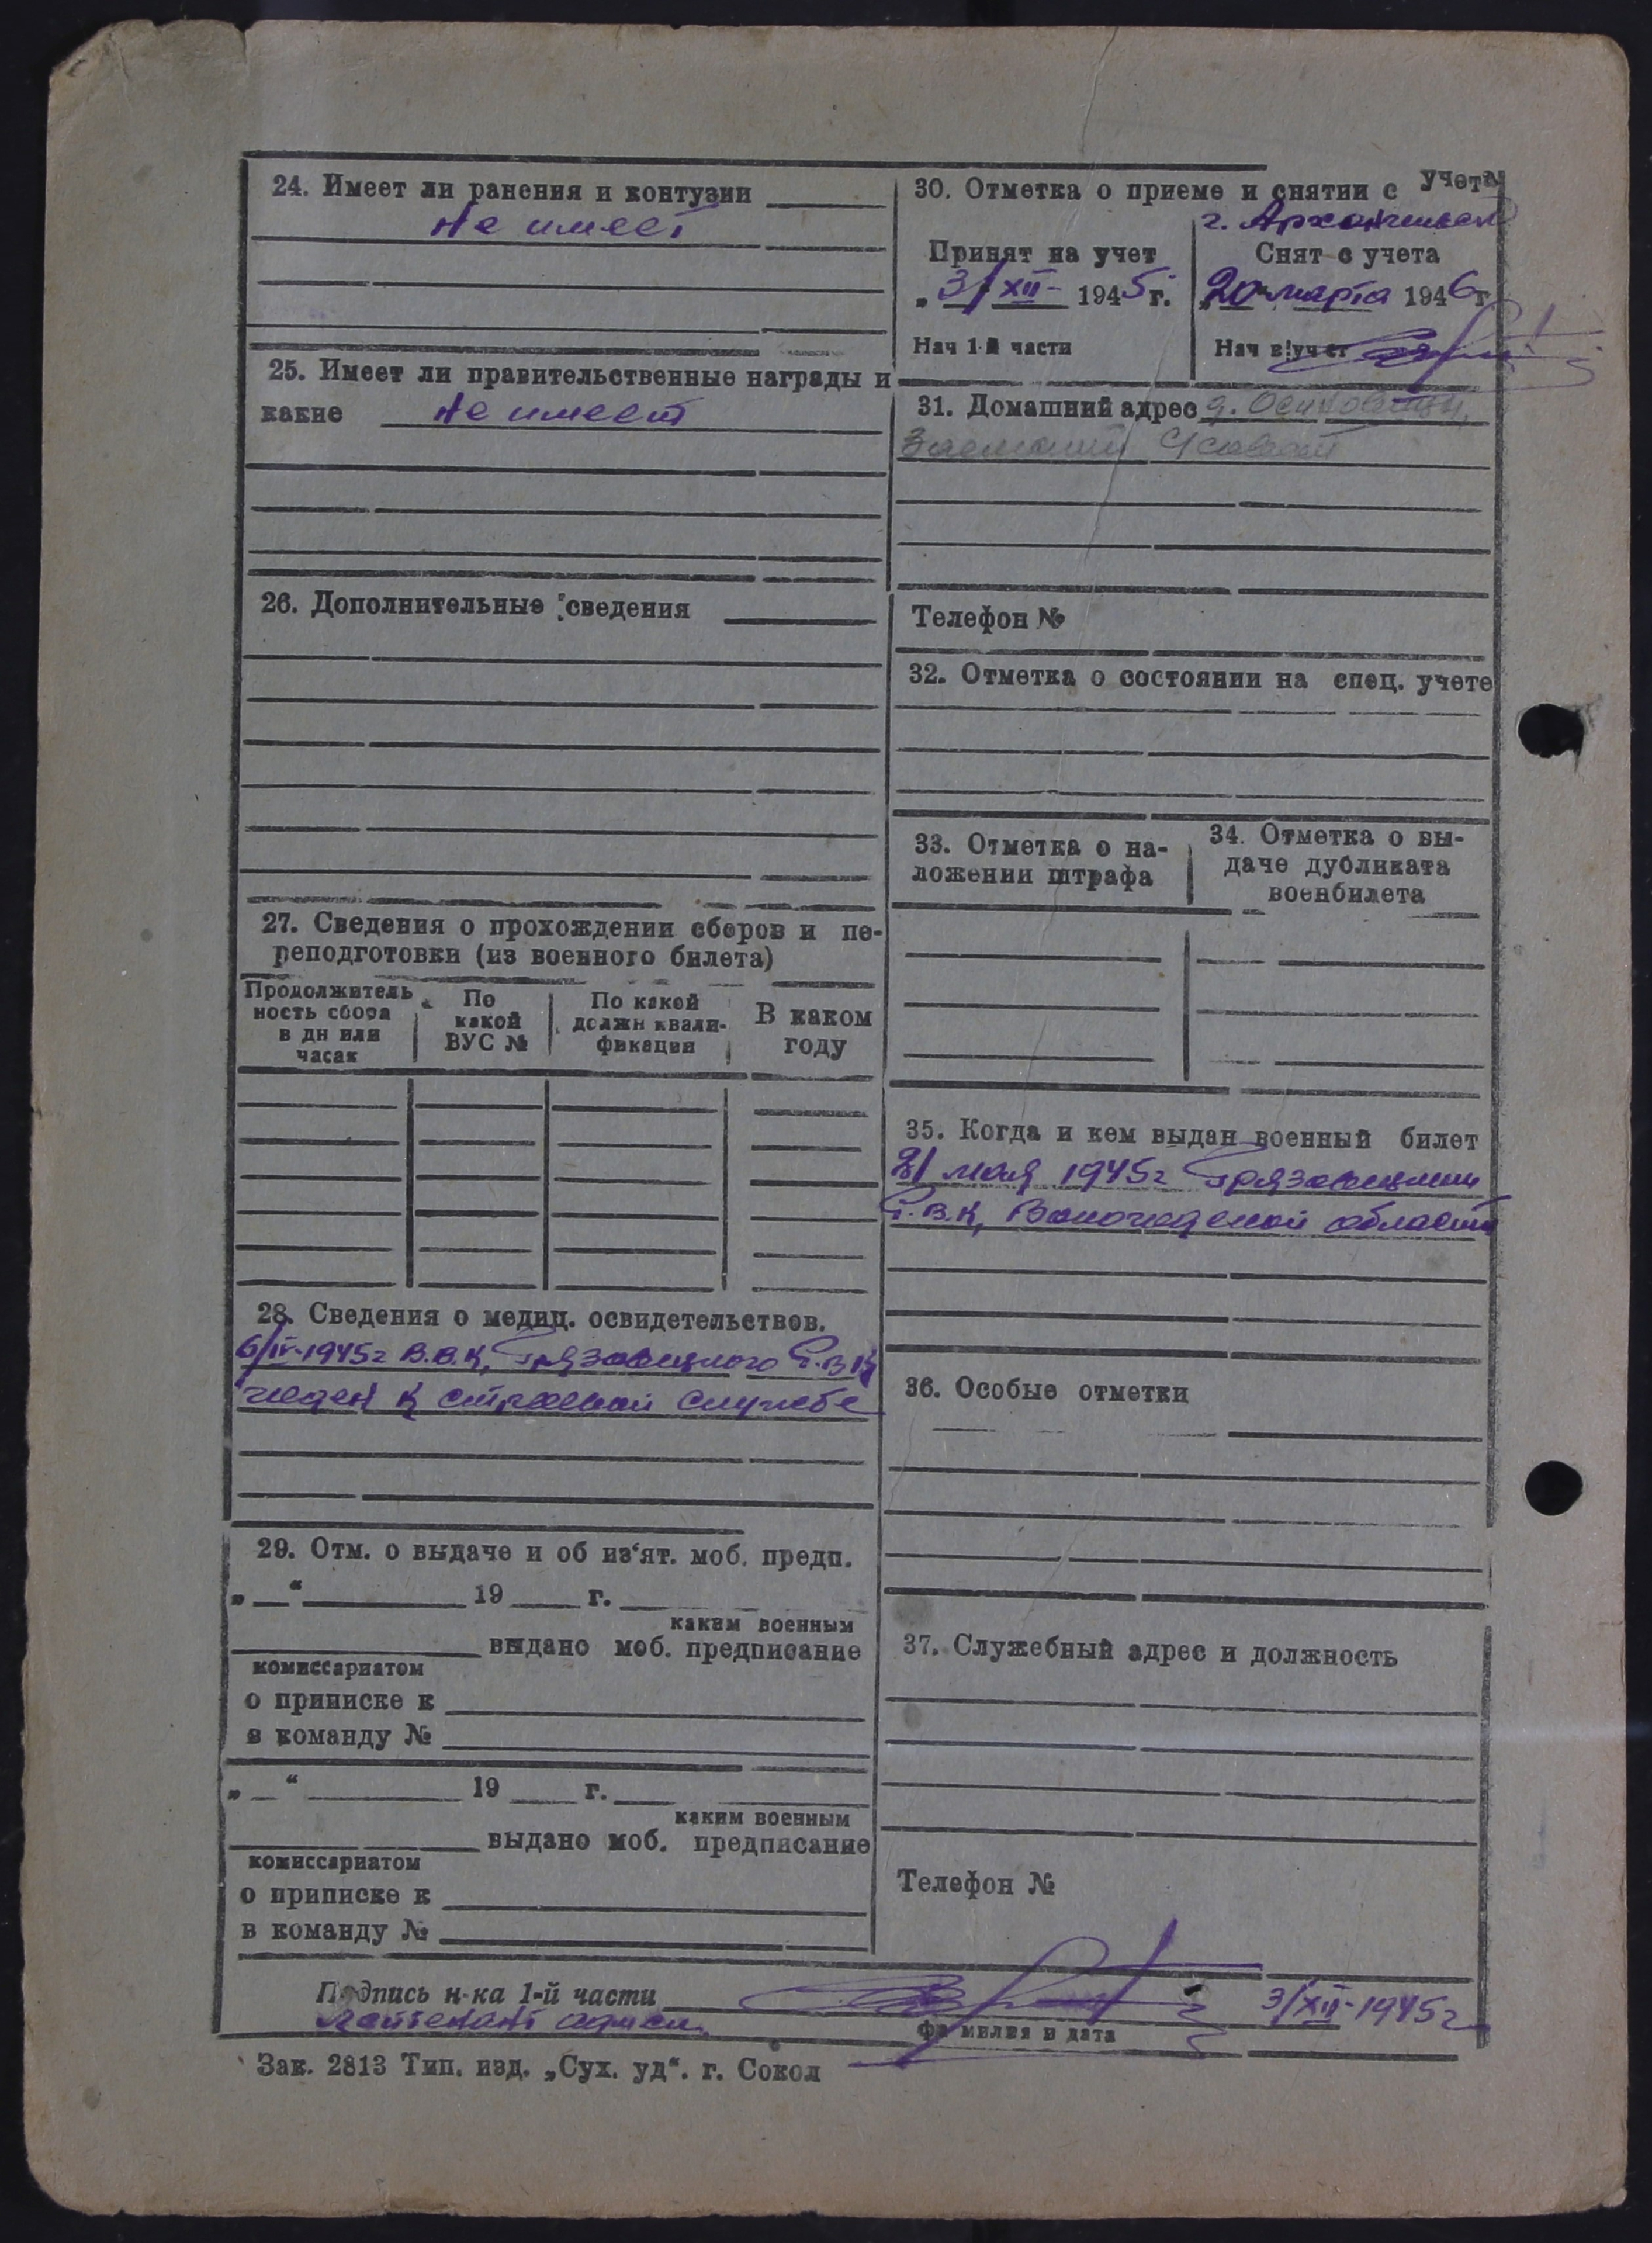 24. Имеет ли ранения и контузии
Не имеет
25. Имеет ли правительственные награды и
какие Не имеет
26. Дополнительные сведения
27. Сведения о прохождении сборов и пе-
реподготовки (из военного билета)
Продолжитель
ность сбора
в дн или
часах
По
какой
ВУС №
По какой
должн квали-
фикации
В каком
году
28. Сведения о медиц. освидетельствов.
6/IV-1945г В.В.К. Грязовецкого Р.В.К
годен к строевой службе
29. Отм. о выдаче и об из'ят. моб. предп.
„ “ 19 г.
каким военным
выдано моб. предписание
комиссариатом
о приписке к
в команду №
„ “ 19 г.
каким военным
выдано моб. предписание
комиссариатом
о приписке к
в команду №
30. Отметка о приеме и снятии с учета
г. Архангельск
Принят на учет
„ 3/XII- 1945 г.
Нач 1-й части
Снят с учета
20 марта 1946 г
Нач в/учет
31. Домашний адрес д.
Телефон №
32. Отметка о состоянии на спец. учете
33. Отметка о на-
ложении штрафа
34. Отметка о вы-
даче дубликата
военбилета
35. Когда и кем выдан военный билет
мая 1945г Грязовецким
Р.В.К, Вологодской области
36. Особые отметки
37. Служебный адрес и должность
Телефон №
Подпись н-ка 1-й части 3/XII-1945г
лейтенант
фамилия и дата
Зак. 2813 Тип. изд. „Сух. уд“. г. Сокол